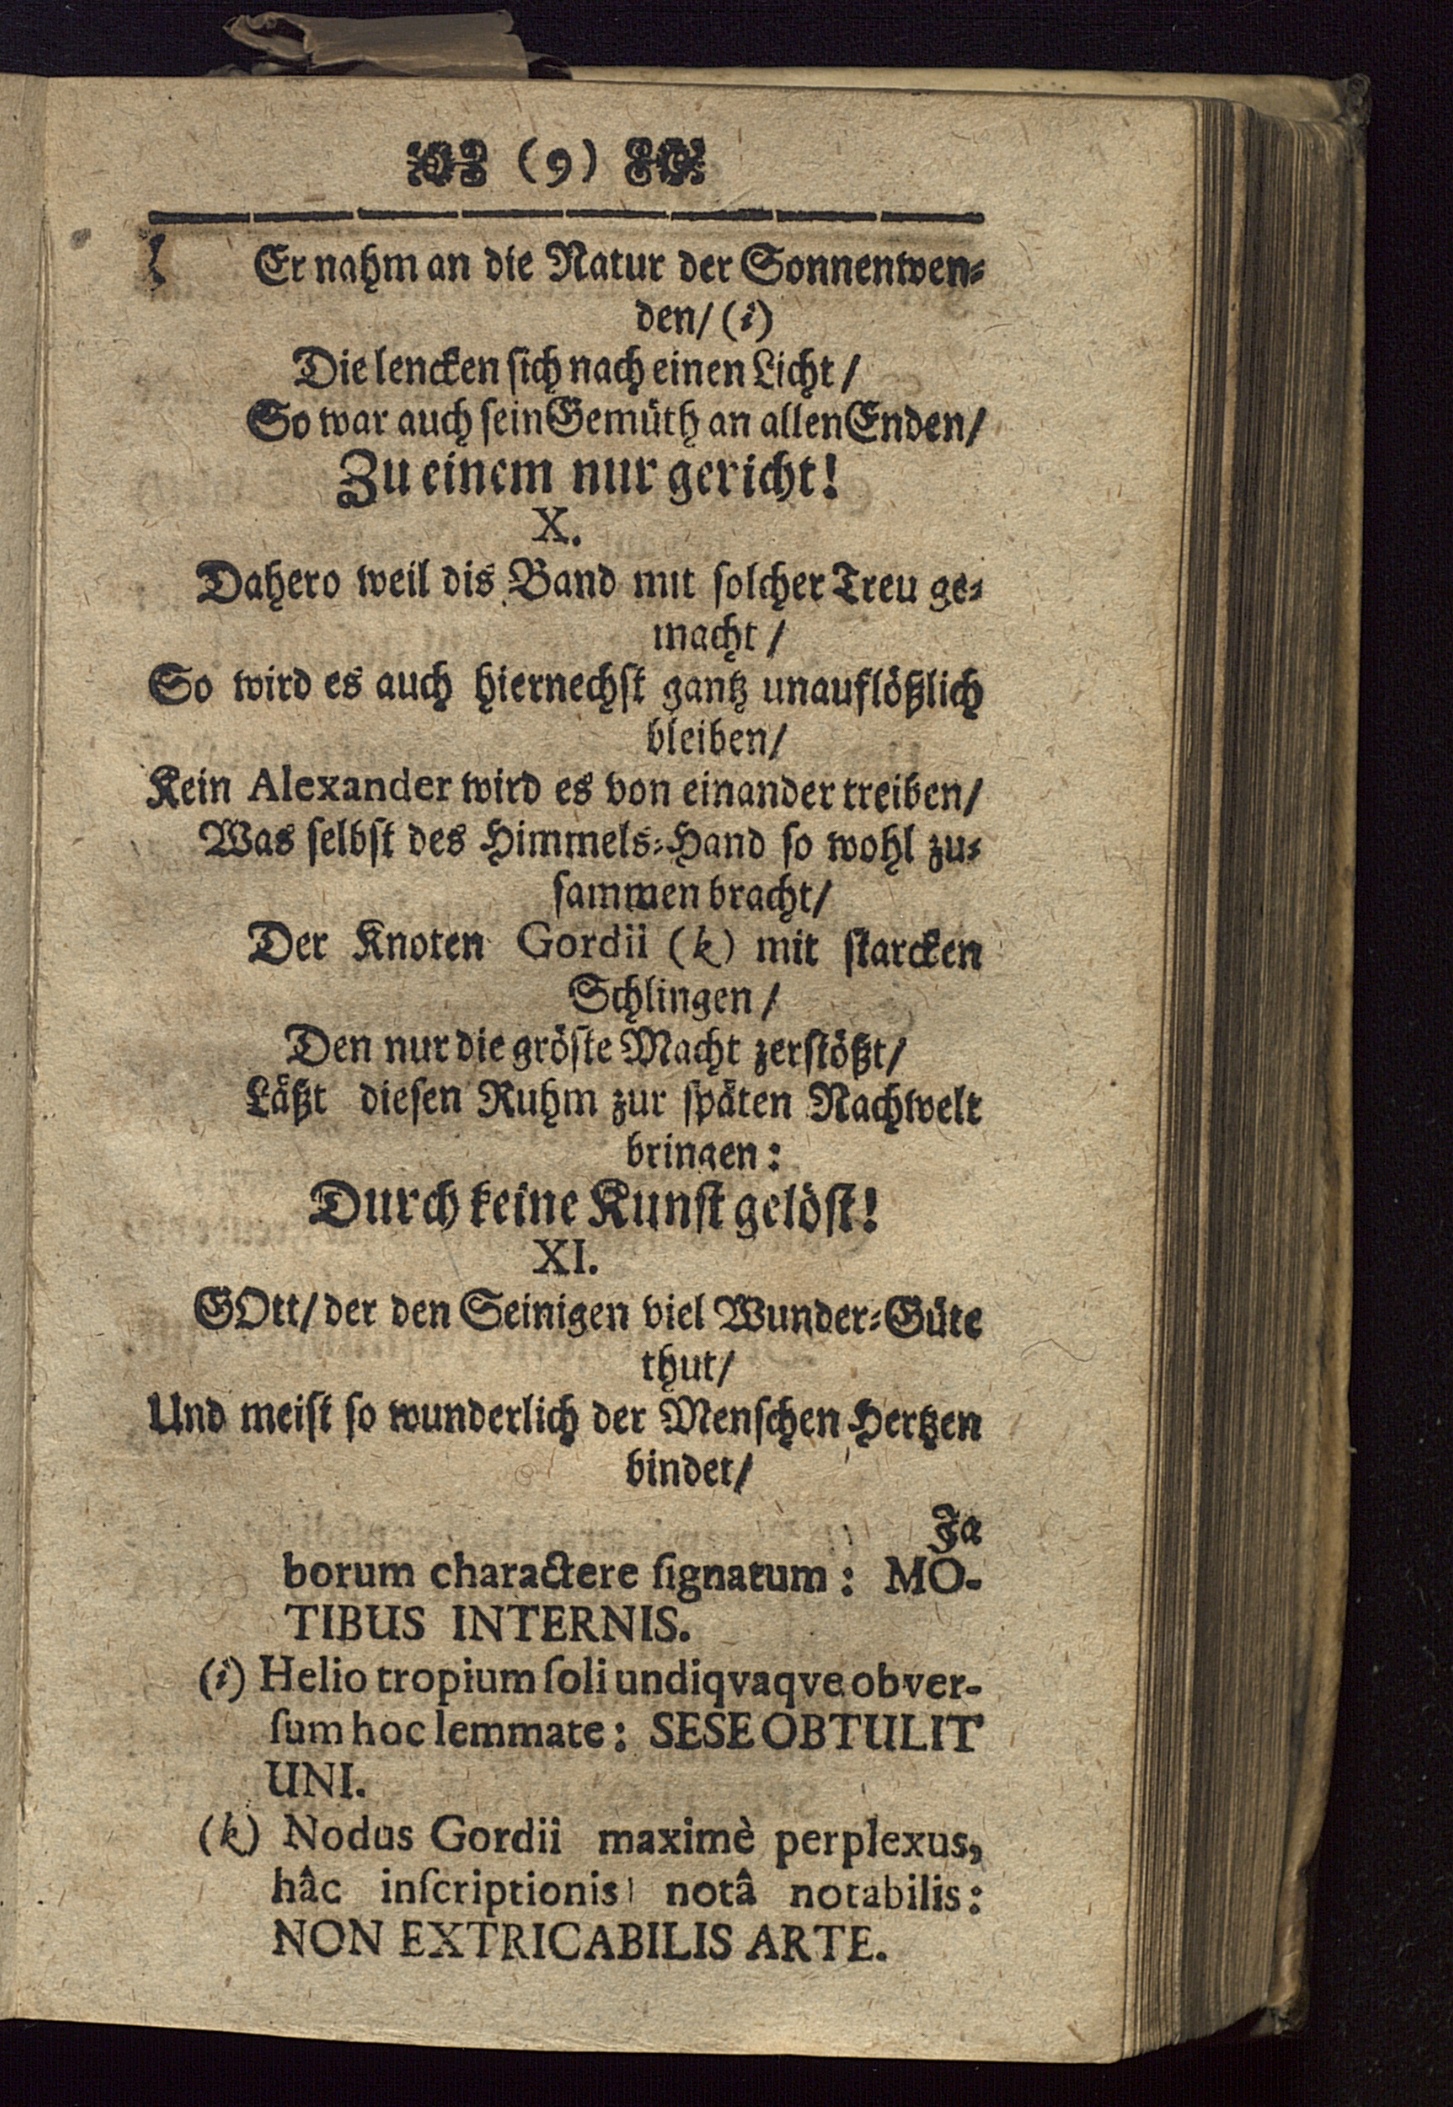 (9)
Er nahm an die Natur der Sonnenwen⸗
den/ (i)
Die lencken sich nach einen Licht/
So war auch sein Gemüth an allen Enden/
Zu einem nur gericht!
X.
Dahero weil dis Band mit solcher Treu ge⸗
macht/
So wird es auch hiernechst gantz unauflößlich
bleiben/
Kein Alexander wird es von einander treiben/
Was selbst des Himmels⸗Hand so wohl zu⸗
sammen bracht/
Der Knoten Gordii (k) mit starcken
Schlingen/
Den nur die gröste Macht zerstößt/
Läßt diesen Ruhm zur späten Nachwelt
bringen:
Durch keine Kunst gelöst!
XI.
GOtt/ der den Seinigen viel Wunder⸗Güte
thut/
Und meist so wunderlich der Menschen Hertzen
bindet/
Ja
borum charactere signatum: MO-
TIBUS INTERNIS.
(i) Heliotropium soli undiqvaqve obver-
sum hoc lemmate: SESE OBTULIT
UNI.
(k) Nodus Gordii maximè perplexus,
hâc inscriptionis notâ notabilis:
NON EXTRICABILIS ARTE.